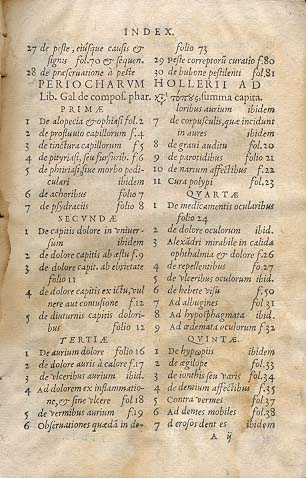 INDEX.
27 de peste, eiúsque causis &
signis fol.70 & sequen.
28 de præservatione à peste
folio 73
29 Peste correptorũ curatio f.80
30 de bubone pestilenti fol.81
PERIOCHARVM HOLLERII AD
Lib. Gal de compos. phar. summa capita.
PRIMÆ
1 De alopecia & ophiasi fol.2
2 de profluvio capillorum f.4
3 de tinctura capillorum f.5
4 de pityriasi, seu furfurib. f.6
5 de phthiriasi, sive morbo pedi-
culari ibidem
6 de achoribus folio 7
7 de psydraciis folio 8
SECVNDÆ
1 De capitis dolore in vniver-
sum ibidem
2 de dolore capitis ab æstu f.9
3 de dolore capit. ab ebrietate
folio 11
4 de dolore capitis ex ictu, vul
nere aut contusione f.12
5 de diuturnis capitis dolori-
bus folio 12
TERTIÆ
1 De aurium dolore folio 16
2 de dolore auris à calore f.17
3 de vlceribus aurium ibid.
4 Ad dolorem ex inflammatio-
ne, & sine vlcere fol 18
5 de vermibus aurium f.19
6 Observationes quædã in do-
loribus aurium ibidem
7 de corpusculis, quæ incidunt
in aures ibidem
8 de gravi auditu fol.20
9 de parotidibus folio 21
10 de narium affectibus f.22
11 Cura polypi fol.23
QVARTÆ
1 De medicamentis ocularibus
folio 24
2 de dolore oculorum ibid.
3 Alexãdri mirabile in calida
ophthalmia & dolore f.26
4 de repellentibus fo.27
5 de vlceribus oculorum ibid.
6 de hebete visu f.30
7 Ad albugines f.31
8 Ad hyposphagmata ibid.
9 Ad œdemata oculorum f.32
QVINTÆ.
1 De hypopiis ibidem
2 de ægilope f.33
3 de ionthis seu varis fol.34
4 de dentium affectibus f.35
5 Contra vermes fol.37
6 Ad dentes mobiles fol.38
7 d erosos dentes ibidem
A ij